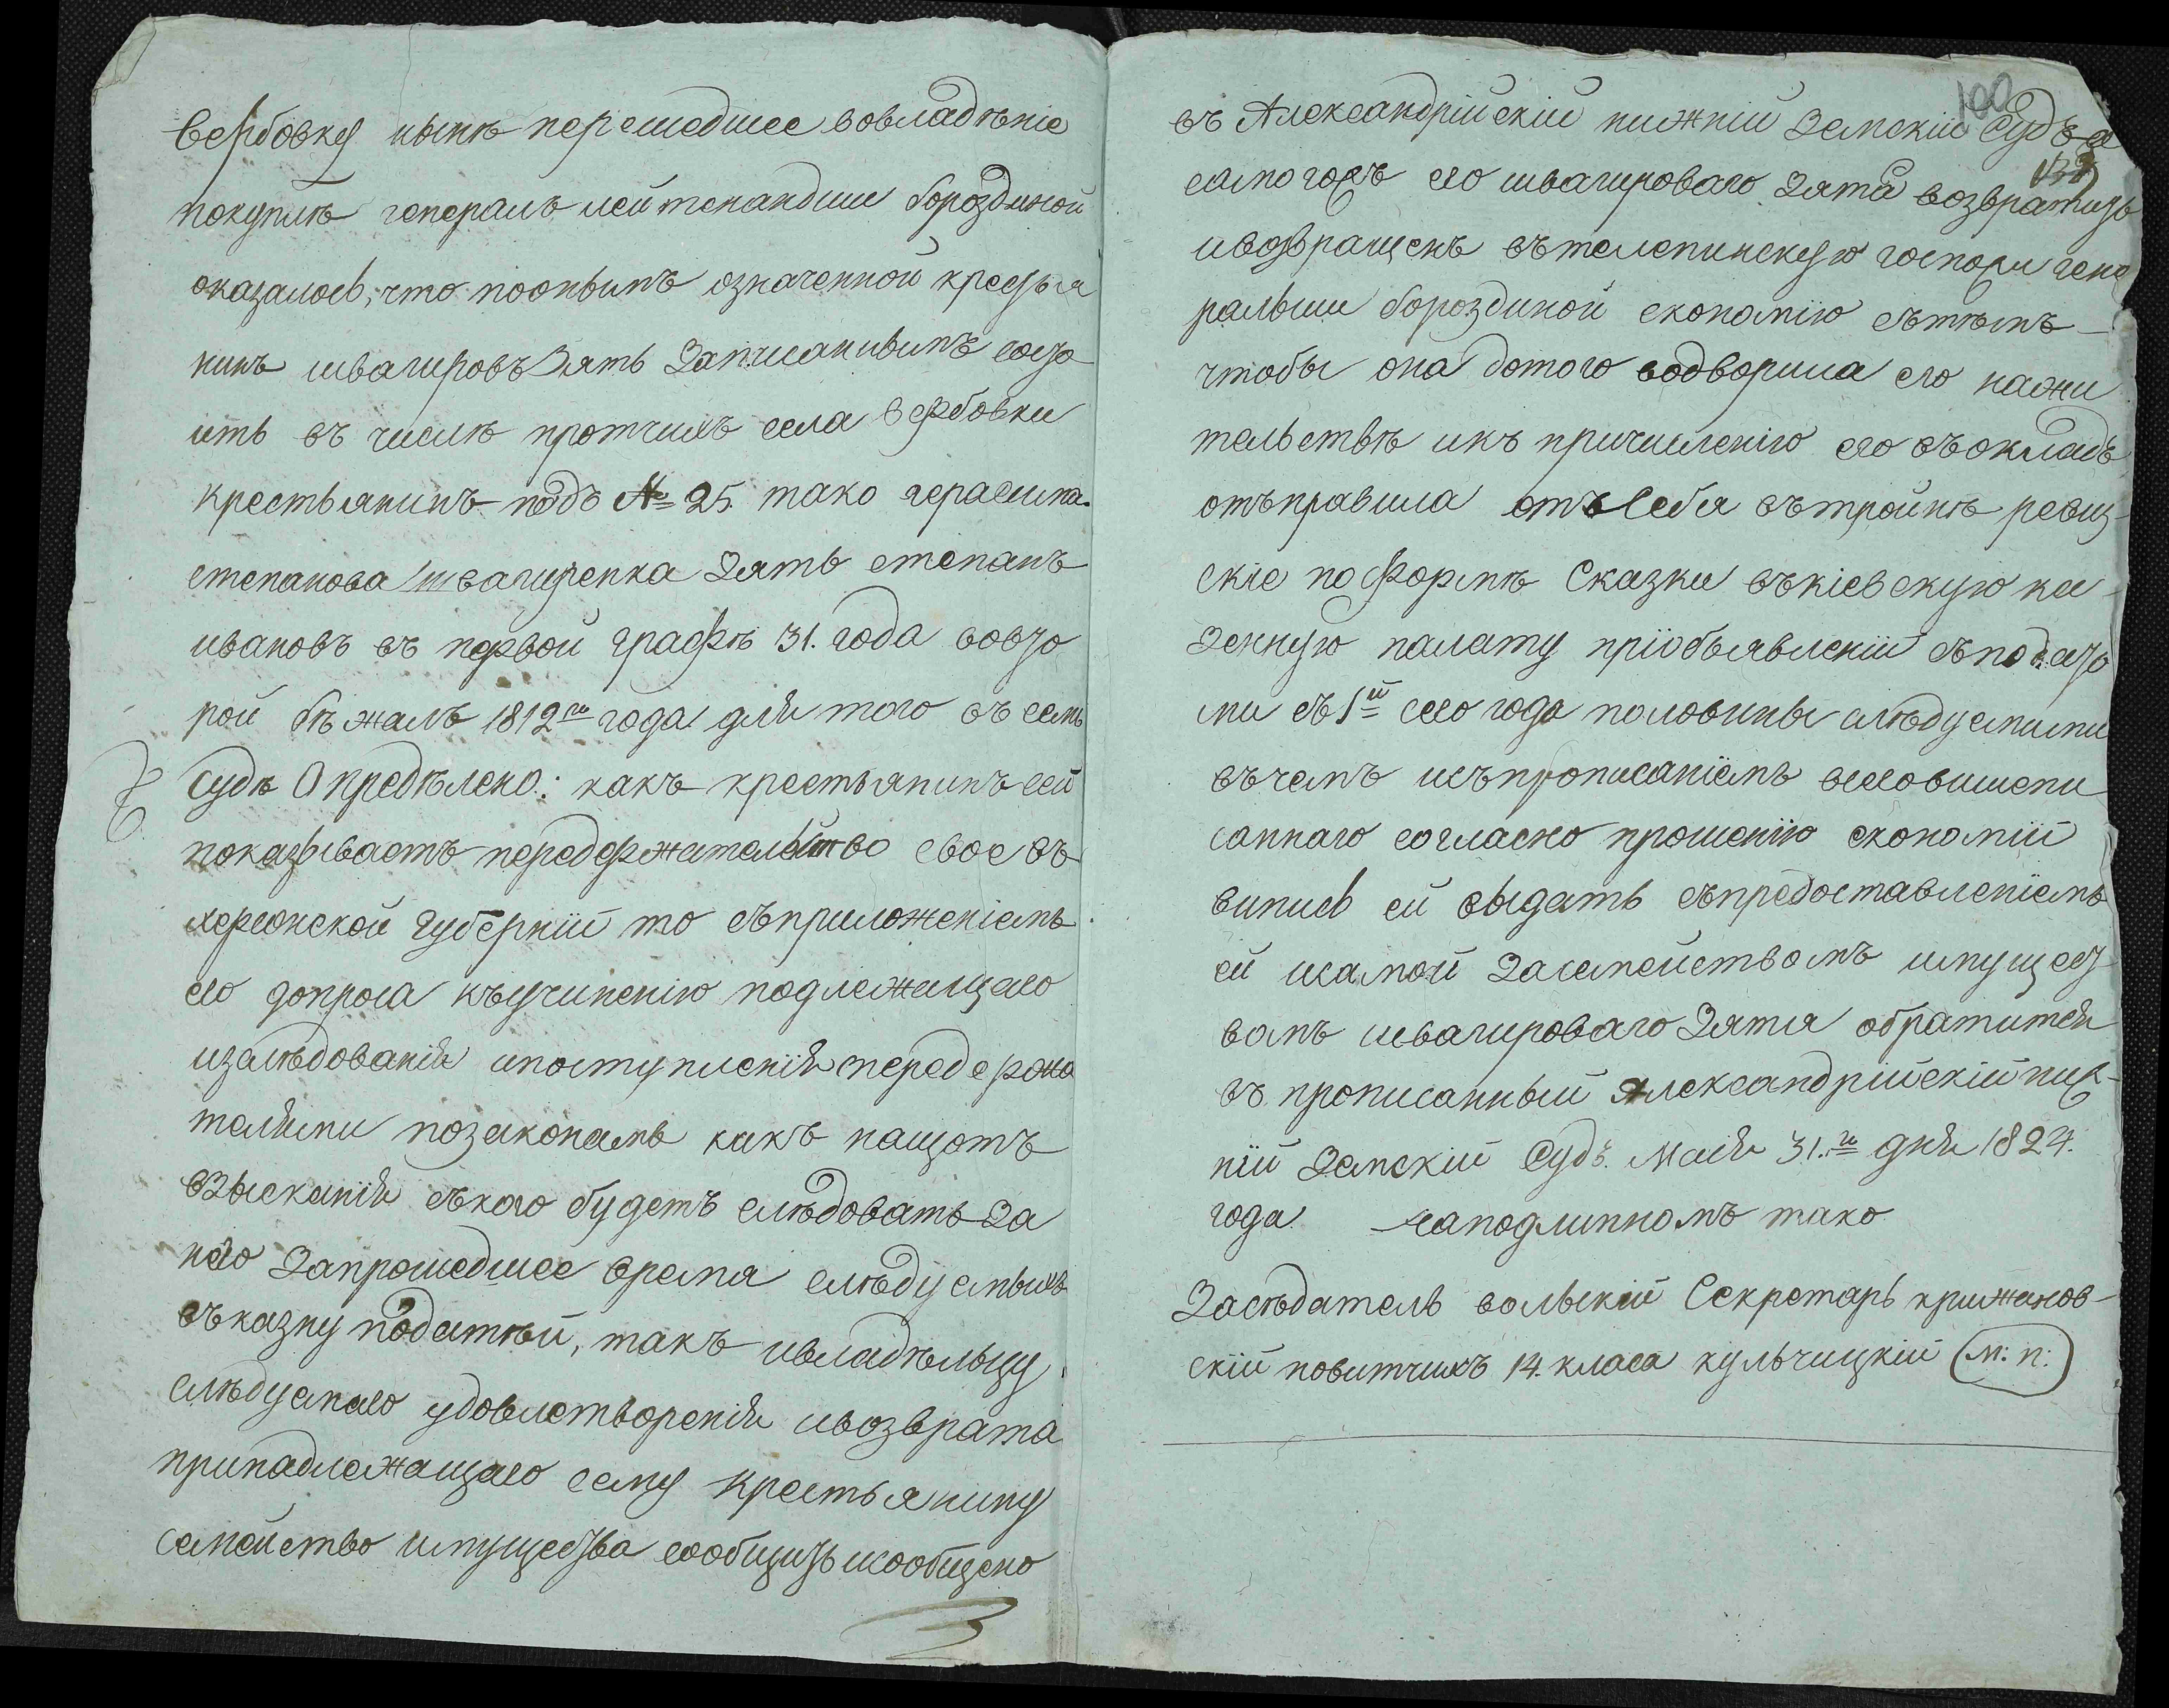 вербовку нынѣ перешедшее вовладѣніе
покуплѣ генералъ лейтенандши бороздиной
оказалось, что поонымъ означенной крестья
нинъ швагировъ Зять Записанивимъ состо
итъ въ числѣ протчихъ села вербовки
крестьянинъ подъ № 25. тако герасима
степанова швагиренка Зять степанъ
ивановъ въ первой графѣ 31. года вовто
рой бѣжалъ 1812го года для того въ семъ
судѣ Опредѣлено: какъ крестьянинъ сей
показываетъ передержательство свое въ
херсонской губерніи то съприложеніемъ
его допроса къучиненію подлежащаго
изслѣдованія ипоступленія спередержа
телями позаконамъ какъ нащотъ
взысканія ского будетъ слѣдовать За
него Запрошедшее время слѣдуемыхъ
въказну податей, такъ ивладѣльцу
слѣдуемаго удовлетворенія ивозврата
принадлежащаго сему крестьянину
семейство имущества сообщить исообщено
100
въ Александрійскій нижній Земскій Судъ а
самогожъ его швагироваго Зятя возвратить
ивозвращенъ вътелепинскую госпожи гене
ральши бороздиной економію сътѣмъ
чтобы она дотого водворила его нажи
тельствѣ икъ причисленію его въокладъ
отъправила отъ Себя втройнѣ ревиз-
скіе поформѣ Сказки въкіевскую ка-
Зенную палату пріобъявленіи съподатьо
ми съ 1й сего года половины слѣдуемыми
въчемъ исъпрописаніемъ всеговишепи
саннаго согласно прошенію економіи
випись ей выдать съпредоставленіемъ
ей исамой Засемействомъ имущест
вомъ швагироваго Зятя обратится
въ прописанный Александрійскій ниж-
ній Земскій Судъ. Маія 31.го дня 1824.
года. Наподлинномъ тако
Засѣдатель вольскій Секретарь крижанов-
скій повитчикъ 14. класа кульчицкій (м: п:)